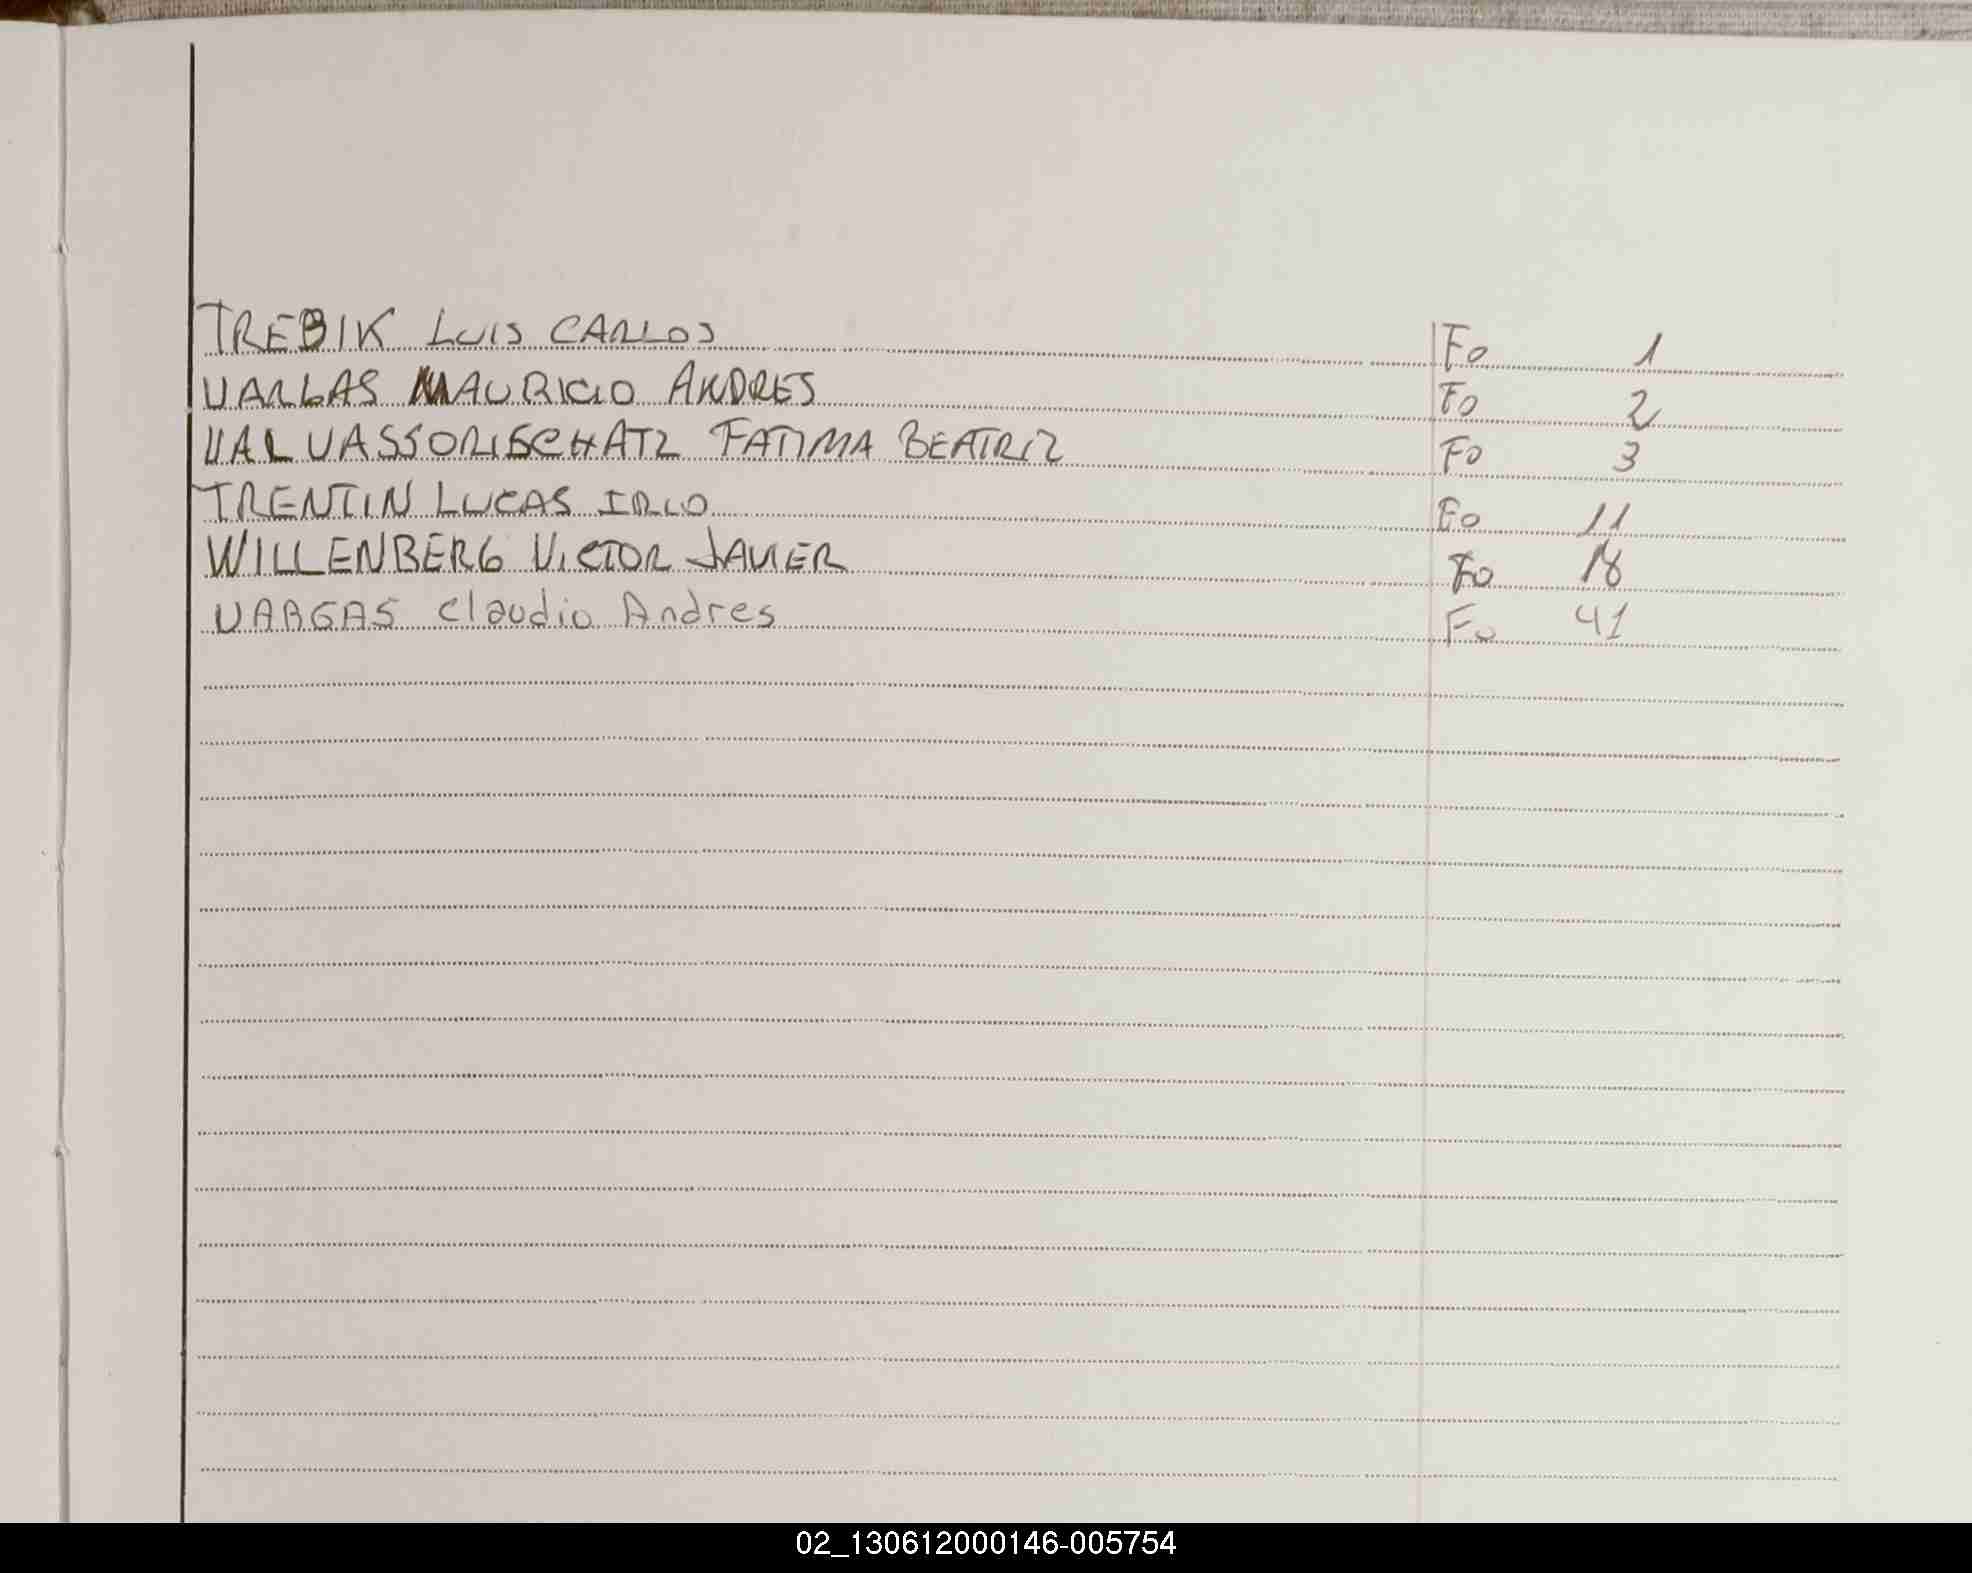 TREBIK LUIS CARLOS Fo 1
VARGAS MAURICIO ANDRES Fo 2
VALVASSORISCHATZ FATIMA BEATRIZ Fo 3
TRENTIN LUCAS Fo 11
WILLENBERG VICTOR JAVIER Fo 18
VARGAS Claudio Andres Fo 41
02_130612000146-005754